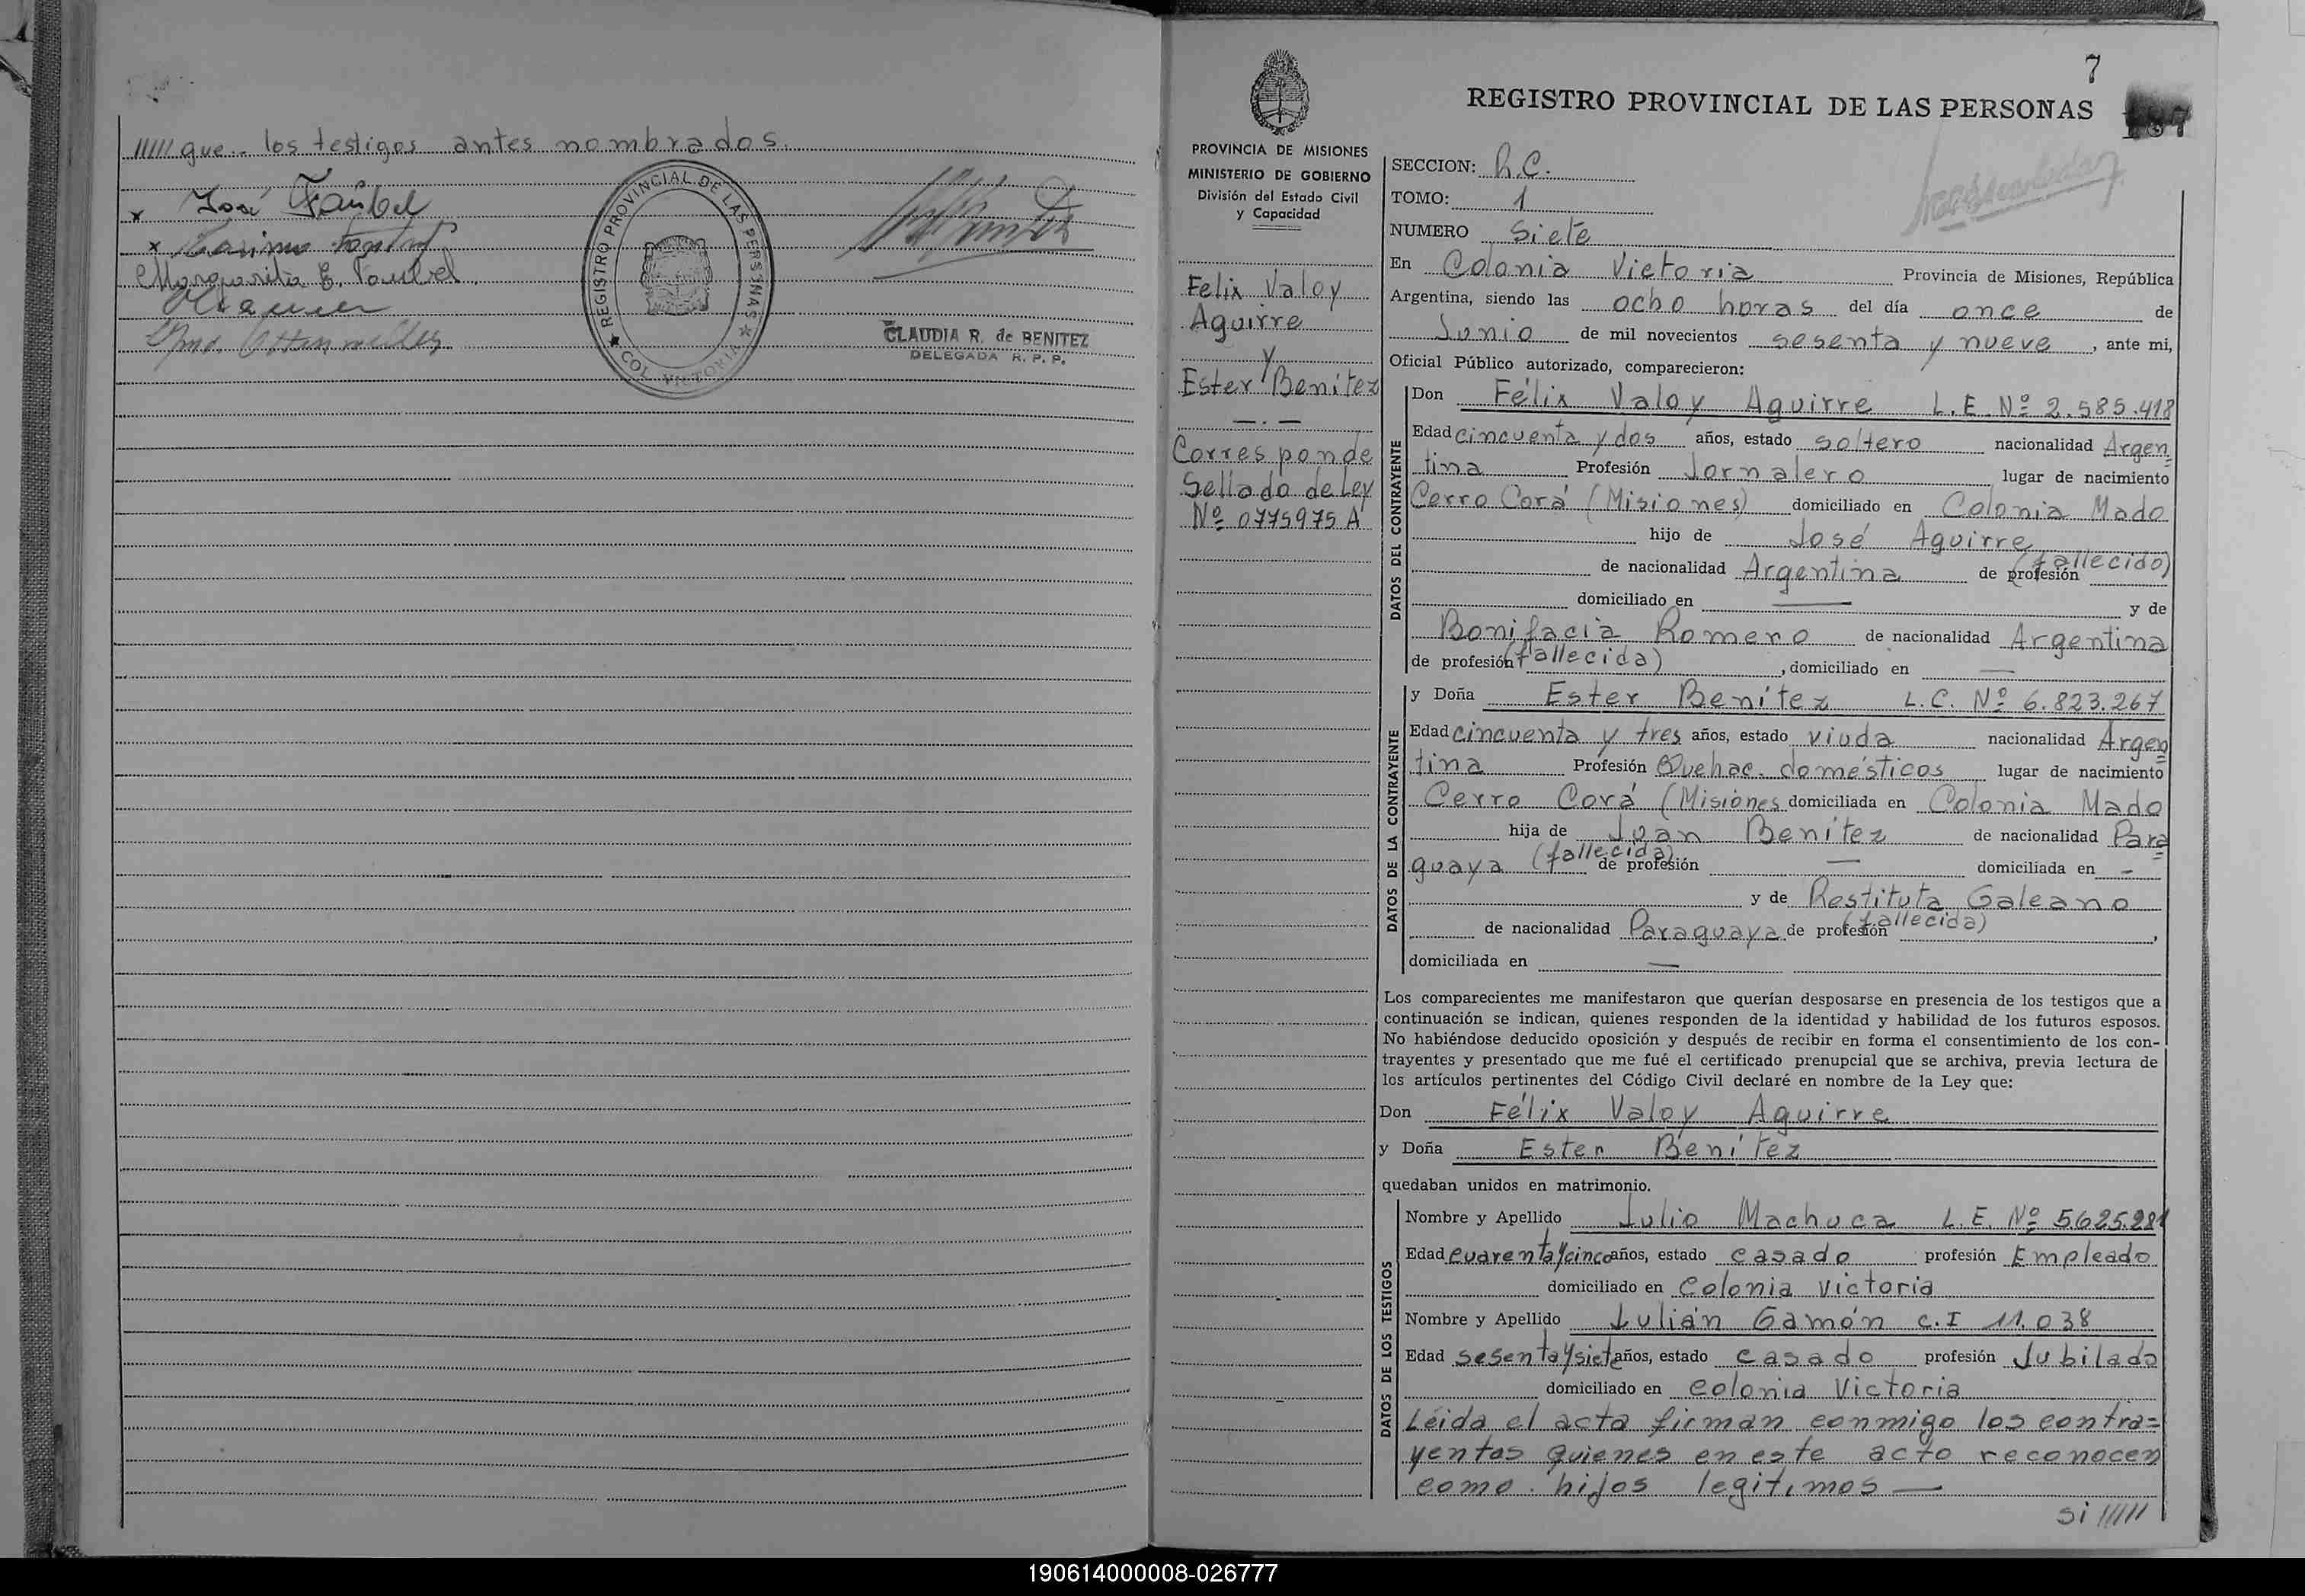 ///// que.. los testigos antes nombrados.
x José Faübel
x
Margarita E. Faubel
REGISTRO PROVINCIAL DE LAS PERSONAS
★ COL. VICTORIA ★
CLAUDIA R. de BENITEZ
DELEGADA R. P. P.
7
REGISTRO PROVINCIAL DE LAS PERSONAS
PROVINCIA DE MISIONES
MINISTERIO DE GOBIERNO
División del Estado Civil
y Capacidad
Felix Valoy
Aguirre
y
Ester Benitez
— . —
Corresponde
Sellado de Ley
Nº 0775975 A
SECCION: R.C.
TOMO: 1
NUMERO Siete
En Colonia Victoria Provincia de Misiones, República
Argentina, siendo las ocho horas del día once de
Junio de mil novecientos sesenta y nueve, ante mi,
Oficial Público autorizado, comparecieron:
DATOS DEL CONTRAYENTE
Don Félix Valoy Aguirre L.E. Nº 2.585.418
Edad cincuenta y dos años, estado soltero nacionalidad Argen=
tina Profesión Jornalero lugar de nacimiento
Cerro Corá (Misiones) domiciliado en Colonia Mado
hijo de José Aguirre
de nacionalidad Argentina de profesión (fallecido)
domiciliado en — y de
Bonifacia Romero de nacionalidad Argentina
de profesión (fallecida), domiciliado en —
DATOS DE LA CONTRAYENTE
y Doña Ester Benítez L.C. Nº 6.823.267
Edad cincuenta y tres años, estado viuda nacionalidad Argen=
tina Profesión Quehac. domésticos lugar de nacimiento
Cerro Corá (Misiones domiciliada en Colonia Mado
hija de Juan Benítez de nacionalidad Para=
guaya (fallecida) de profesión — domiciliada en -
y de Restituta Galeano
de nacionalidad Paraguaya de profesión (fallecida),
domiciliada en —
Los comparecientes me manifestaron que querían desposarse en presencia de los testigos que a
continuación se indican, quienes responden de la identidad y habilidad de los futuros esposos.
No habiéndose deducido oposición y después de recibir en forma el consentimiento de los con-
trayentes y presentado que me fué el certificado prenupcial que se archiva, previa lectura de
los artículos pertinentes del Código Civil declaré en nombre de la Ley que:
Don Félix Valoy Aguirre
y Doña Ester Benítez
quedaban unidos en matrimonio.
DATOS DE LOS TESTIGOS
Nombre y Apellido Julio Machuca L.E. Nº 5.625.281
Edad cuarenta y cinco años, estado casado profesión Empleado
domiciliado en Colonia Victoria
Nombre y Apellido Julián Gamón C.I 11.038
Edad sesenta y siete años, estado casado profesión Jubilado
domiciliado en Colonia Victoria
Leida el acta firman conmigo los contra=
yentes quienes en este acto reconocen
como hijos legitimos —
si /////
190614000008-026777